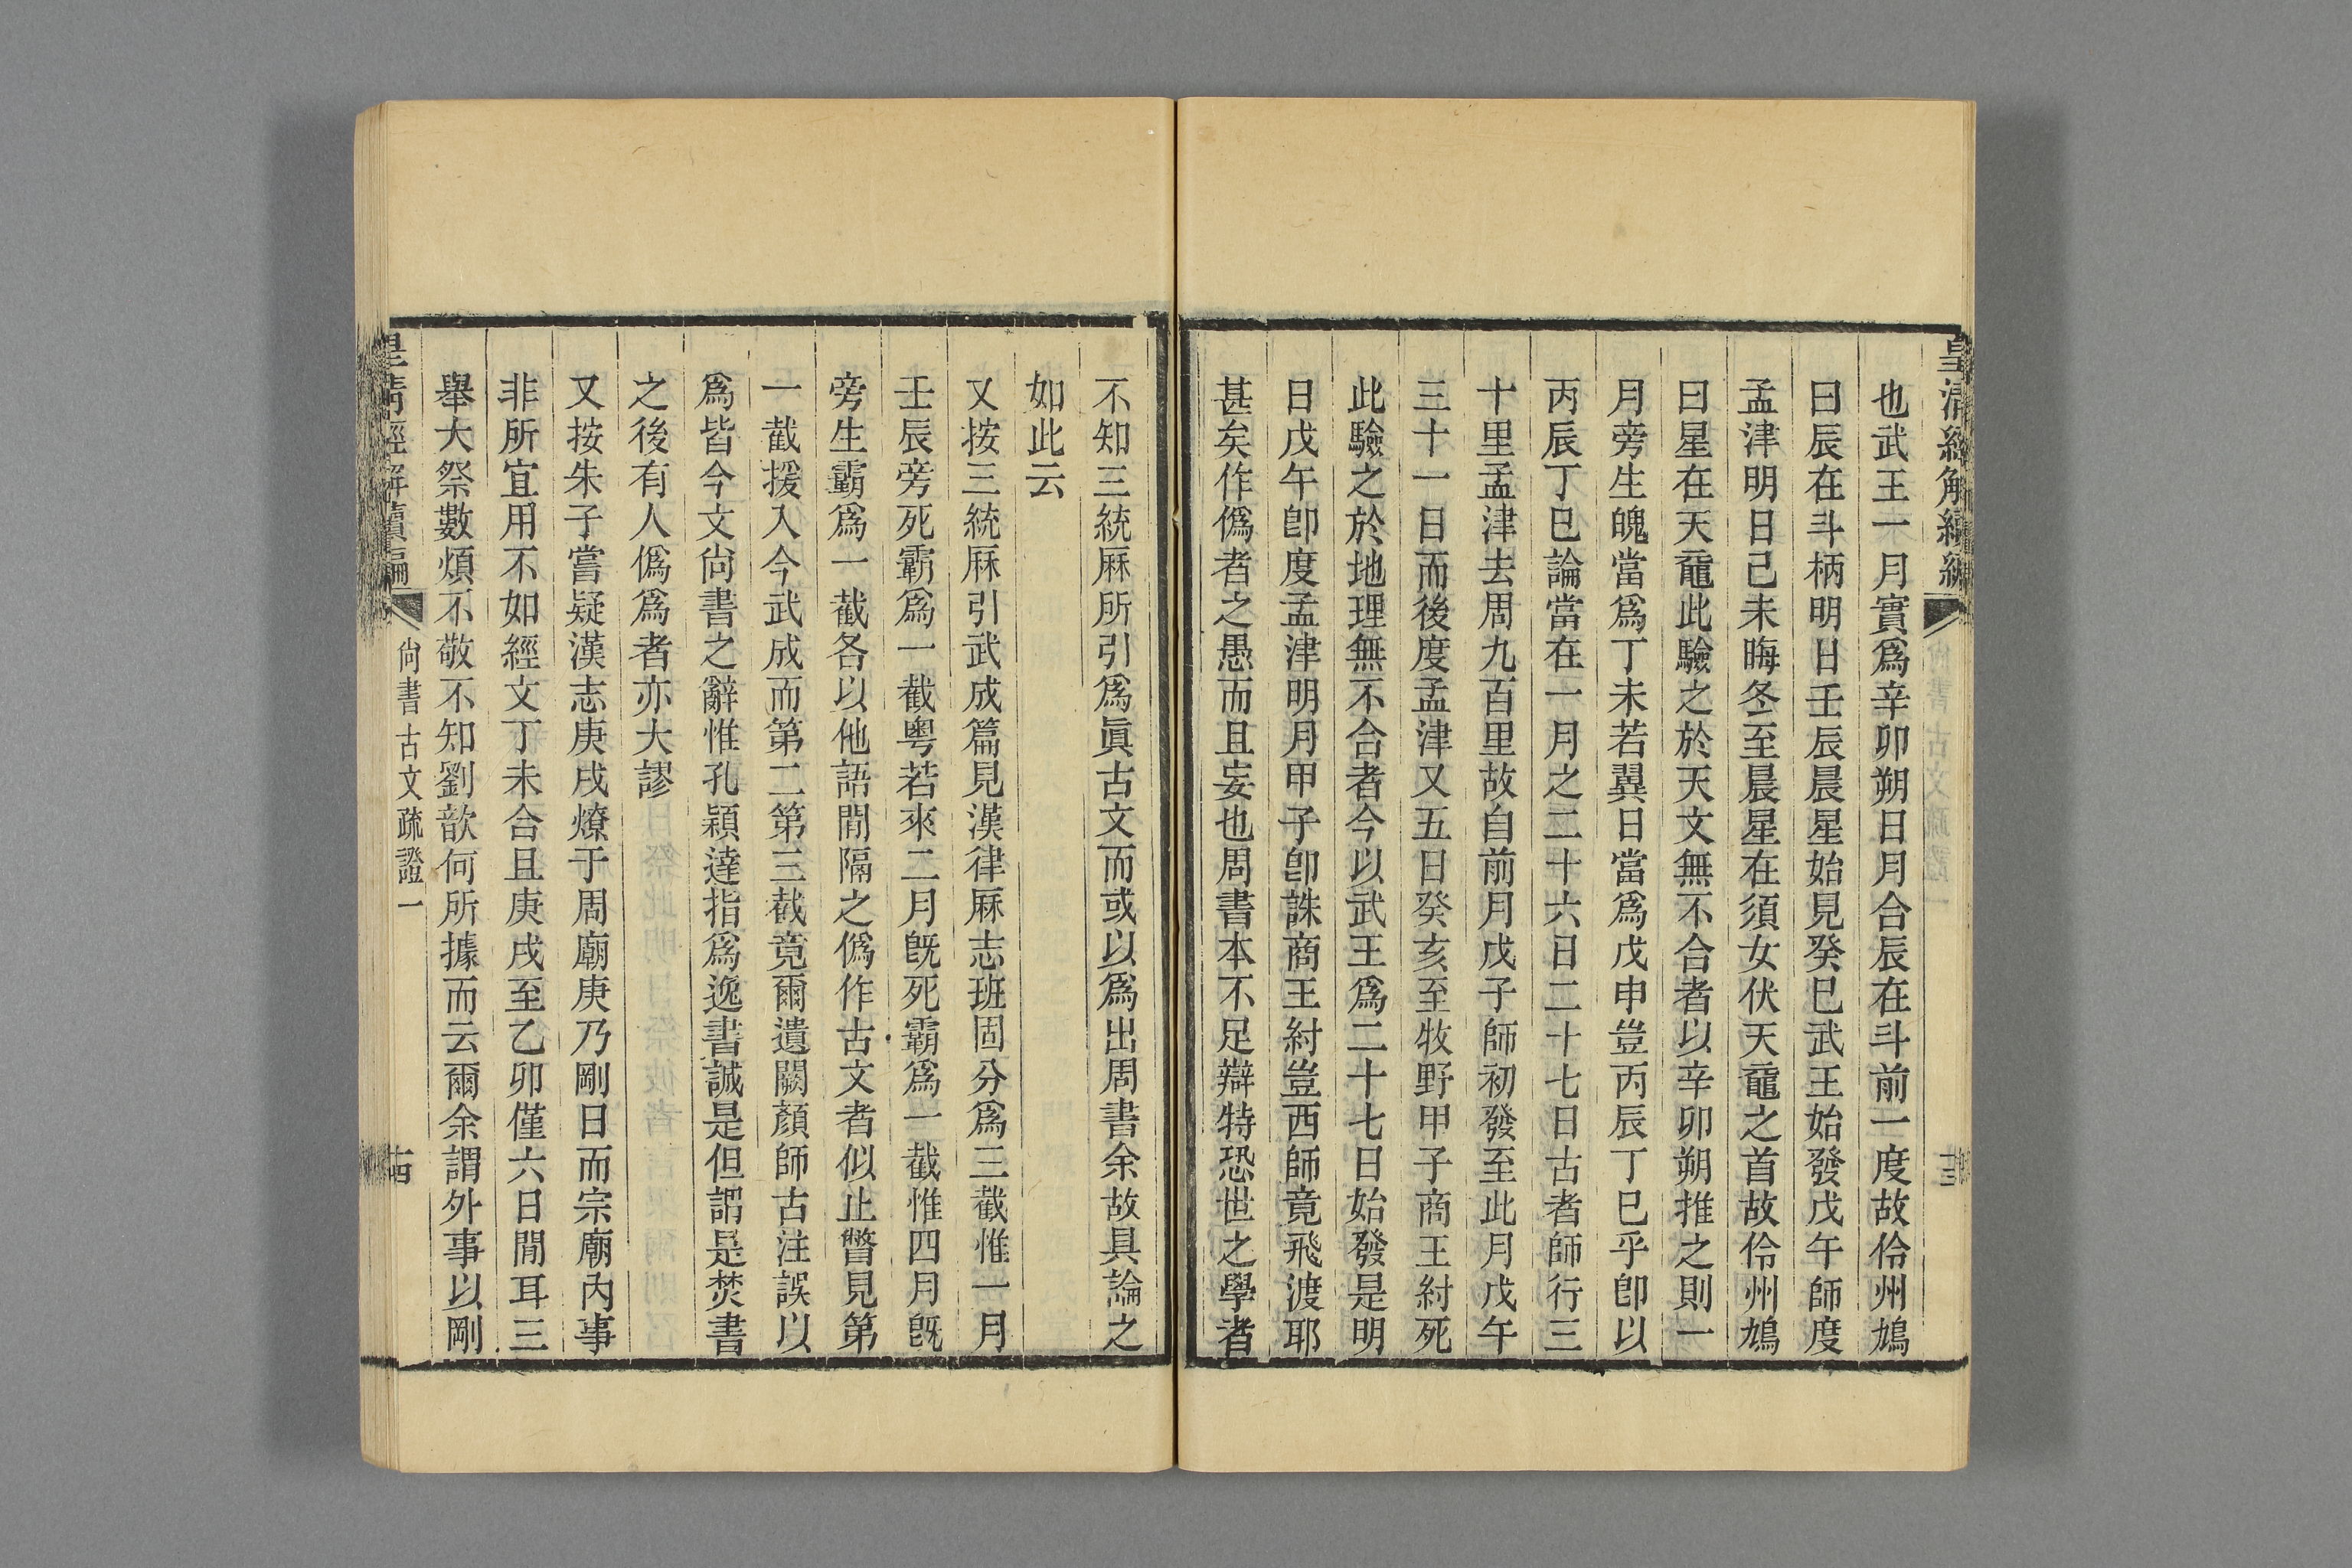 皇清經解續編
十三
也武王一月實爲辛卯朔日月合辰在斗前一度故伶州鳩
曰辰在斗柄明日壬辰晨星始見癸巳武王始發戊午師度
孟津明日己未晦冬至晨星在須女伏天黿之首故伶州鳩
曰星在天黿此驗之於天文無不合者以辛卯朔推之則一
月旁生魄當爲丁未若翼日當爲戊申豈丙辰丁巳乎卽以
丙辰丁巳論當在一月之二十六日二十七日古者師行三
十里孟津去周九百里故自前月戊子師初發至此月戊午
三十一日而後度孟津又五日癸亥至牧野甲子商王紂死
此驗之於地理無不合者今以武王爲二十七日始發是明
日戊午卽度孟津明月甲子卽誅商王紂豈西師竟飛渡耶
甚矣作僞者之愚而且妄也周書本不足辯特恐世之學者
不知三統厤所引爲眞古文而或以爲出周書余故具論之
如此云
又按三統厤引武成篇見漢律厤志班固分爲三截惟一月
壬辰旁死霸爲一截粵若來二月旣死霸爲一截惟四月旣
旁生霸爲一截各以他語閒隔之僞作古文者似止瞥見第
一截援入今武成而第二第三截竟爾遺闕顏師古注誤以
爲皆今文尙書之辭惟孔穎達指爲逸書誠是但謂是焚書
之後有人僞爲者亦大謬
又按朱子嘗疑漢志庚戌燎于周廟庚乃剛日而宗廟內事
非所宜用不如經文丁未合且庚戌至乙卯僅六日閒耳三
舉大祭數煩不敬不知劉歆何所據而云爾余謂外事以剛
皇清經解續編
尙書古文疏證一
十四